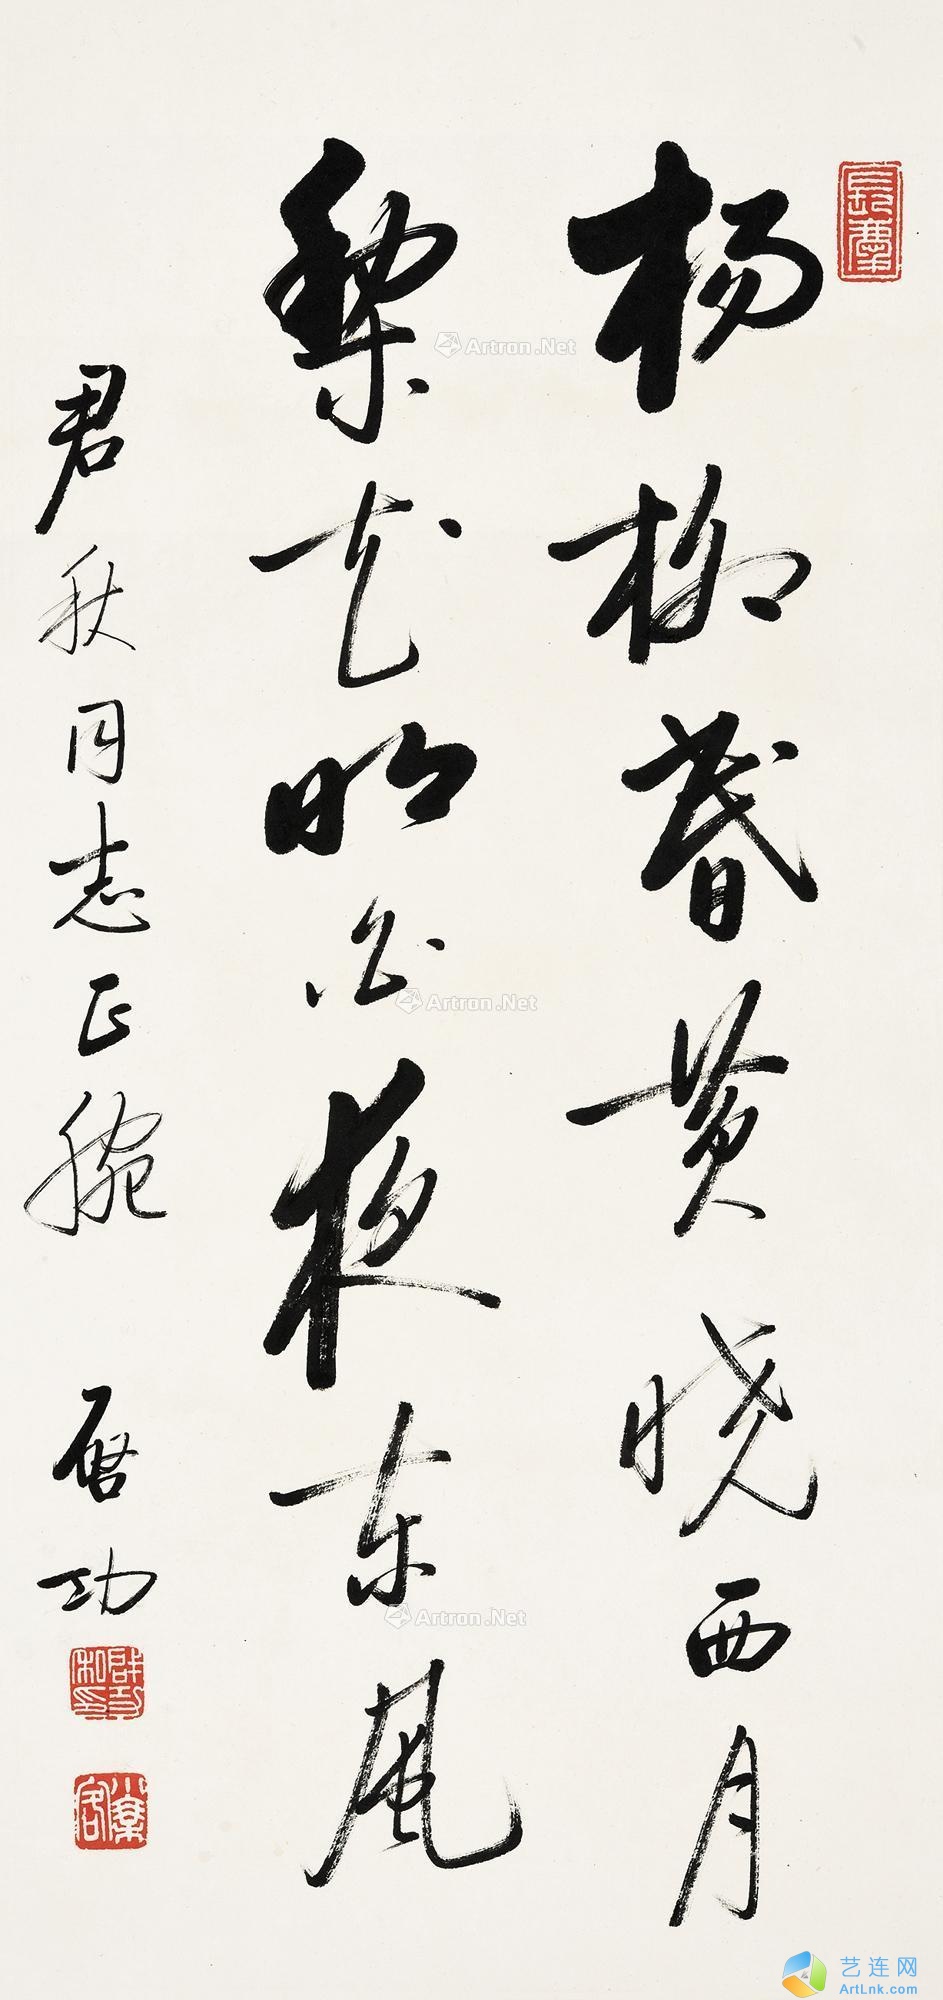 杨柳昏黄晓西月
梨花明白夜东风
君秋同志正腕 启功
Artron.Net
Artron.Net
Artron.Net
艺连网
ArtLnk.com